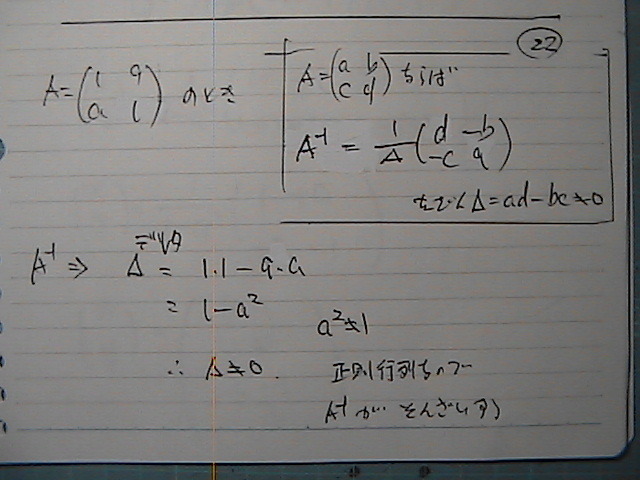 22
A=(1 a
a 1) のとき
A=(a b
c d) ならば
A⁻¹ = 1/Δ (d -b
-c a)
ただしΔ=ad-bc≠0
デルタ
A⁻¹ ⇒ Δ = 1.1-a・a
= 1-a²
a²≠1
∴ Δ≠0. 正則行列なので
A⁻¹が そんざいする